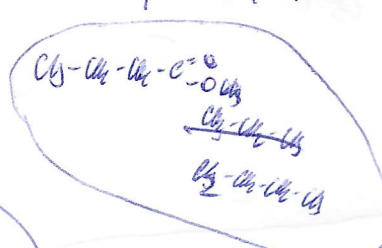 CH3-CH2-CH2-C=O
-OCH3
CH3-CH2-CH3
CH3-CH2-CH2-CH3